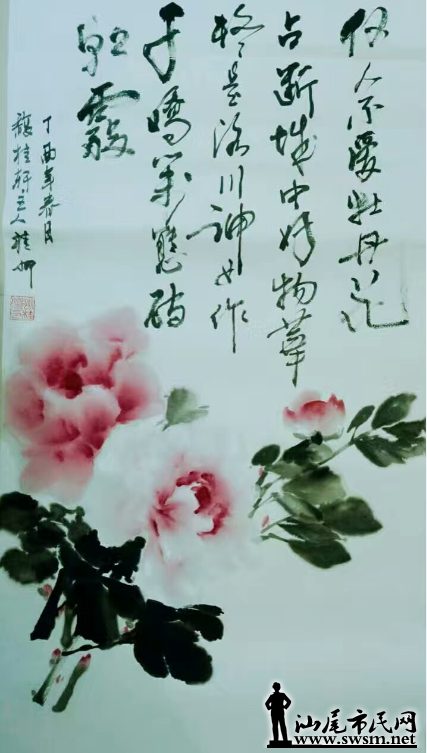 何人不愛牡丹花
占断城中好物華
疑是洛川神女作
千嬌萬態破
朝霞
丁酉年春月
桂轩主人
汕尾市民网
www.swsm.net